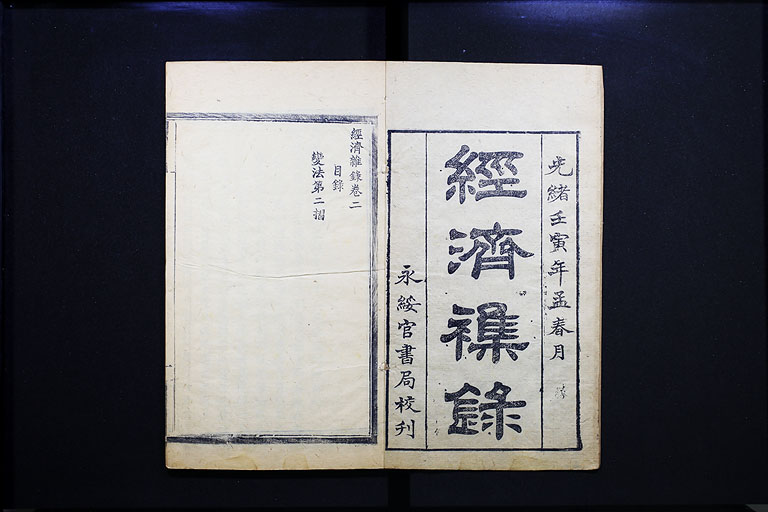 光緒壬寅年孟春月
經濟襍錄
永綏官書局校刊
經濟雜錄卷二
目錄
變法第二摺